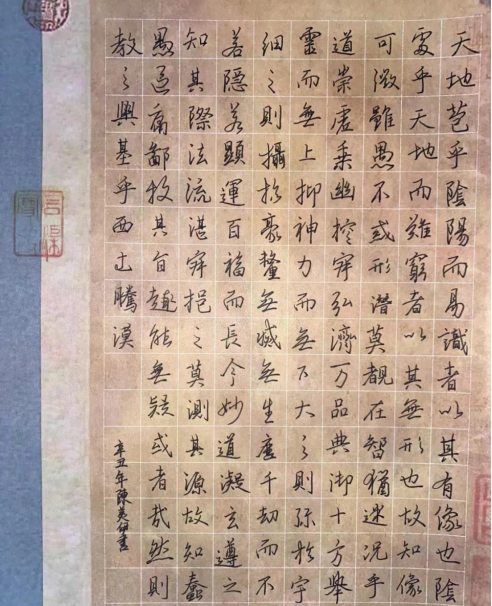 天地苞乎陰陽而易識者以其有像也陰
處乎天地而難窮者以其無形也故知像
可徵雖愚不惑形潛莫覩在智猶迷況乎
道崇虛乘幽控寂弘濟万品典御十方舉
靈而無上抑神力而無下大之則彌於宇
細之則攝於豪釐無滅無生歷千劫而不
若隱若顯運百福而長今妙道凝玄遵之
知其際法流湛寂挹之莫測其源故知蠢
愚區庸鄙投其旨趣能無疑惑者哉然則
教之興基乎西土騰漢
辛丑年陳書